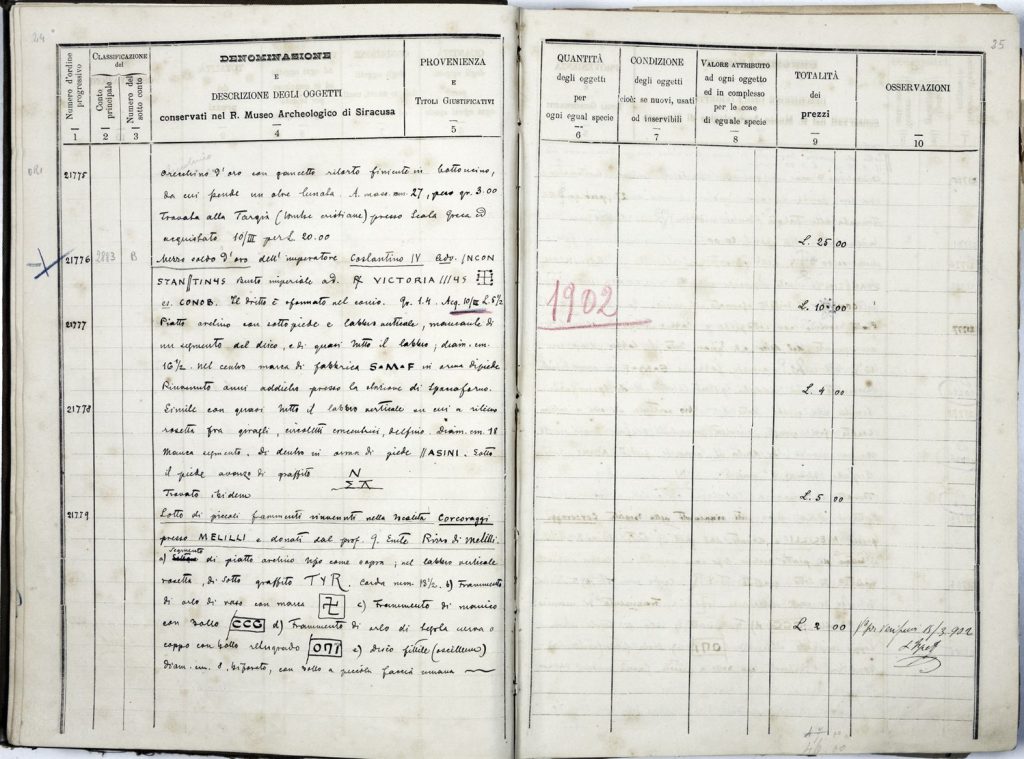 24
Numero d'ordine progressivo
CLASSIFICAZIONE del
Conto principale
Numero del sotto conto
DENOMINAZIONE
E
DESCRIZIONE DEGLI OGGETTI
conservati nel R. Museo Archeologico di Siracusa
PROVENIENZA
E
TITOLI GIUSTIFICATIVI
1 2 3 4 5
ORI
21775 Orecchino d'oro con gancetto ritorto finiente in bottoncino,
da cui pende un lunata. A. mass. cm. 27, peso gr. 3.00
Trovata alla Targia (tombe cristiane) presso Scala Greca ed
acquistato 10/III per L. 20.00
21776 2883 B Mezzo soldo d'oro dell'imperatore Costantino IV
STAN//TINYS Busto imperiale ad. VICTORIA///YS
CONOB. Il dritto è sformato nel conio. Gr. 1.4. Acq. 10/III L. 5½
21777 Piatto aretino con sottopiede e labbro verticale, mancante di
un segmento del disco, e di quasi tutto il labbro; diam. cm.
16½. Nel centro marca di fabbrica S·M·F in orma di piede
Rinvenuto anni addietro presso la stazione di
21778 Simile con quasi tutto il labbro verticale su cui a rilievo
rosetta fra circoletti concentrici, delfino. Diam. cm. 18
Manca segmento. Di dentro in orma di piede //ASINI. Sotto
il piede avanzo di graffito N
Trovato ibidem
21779 Lotto di piccoli frammenti rinvenuti nella località Corcoraggi
presso MELILLI e donati dal prof. G. Emte Rizzo di Melilli.
a) Segmento di piatto aretino tipo come sopra; nel labbro verticale
rosetta, di sotto graffito TYR. Corda mm. 13½. b) Frammento
di orlo di vaso con marca 卍 c) Frammento di manico
con bollo CCG d) Frammento di orlo di tegola curva o
coppo con bollo retrogrado e) disco fittile (oscillum)
diam. cm. 8. biforato, con bollo a piccola faccia umana
25
QUANTITÀ
degli oggetti
per
ogni egual specie
CONDIZIONE
degli oggetti
cioè: se nuovi, usati
od inservibili
VALORE ATTRIBUITO
ad ogni oggetto
ed in complesso
per le cose
di eguale specie
TOTALITÀ
dei
prezzi
OSSERVAZIONI
6 7 8 9 10
L. 25 00
1902
L. 10 00
L. 4 00
L. 5 00
L. 2 00